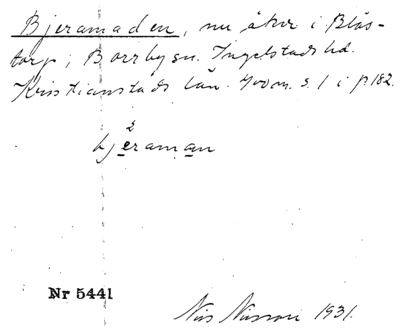 Bjeramaden, nu åker i Blås-
torp, Borrby sn. Ingelstads hd.
Kristianstads län. 400 m. s. l i p 182.
2
bjeraman
Nr 5441
Nils Nilsson 1931.